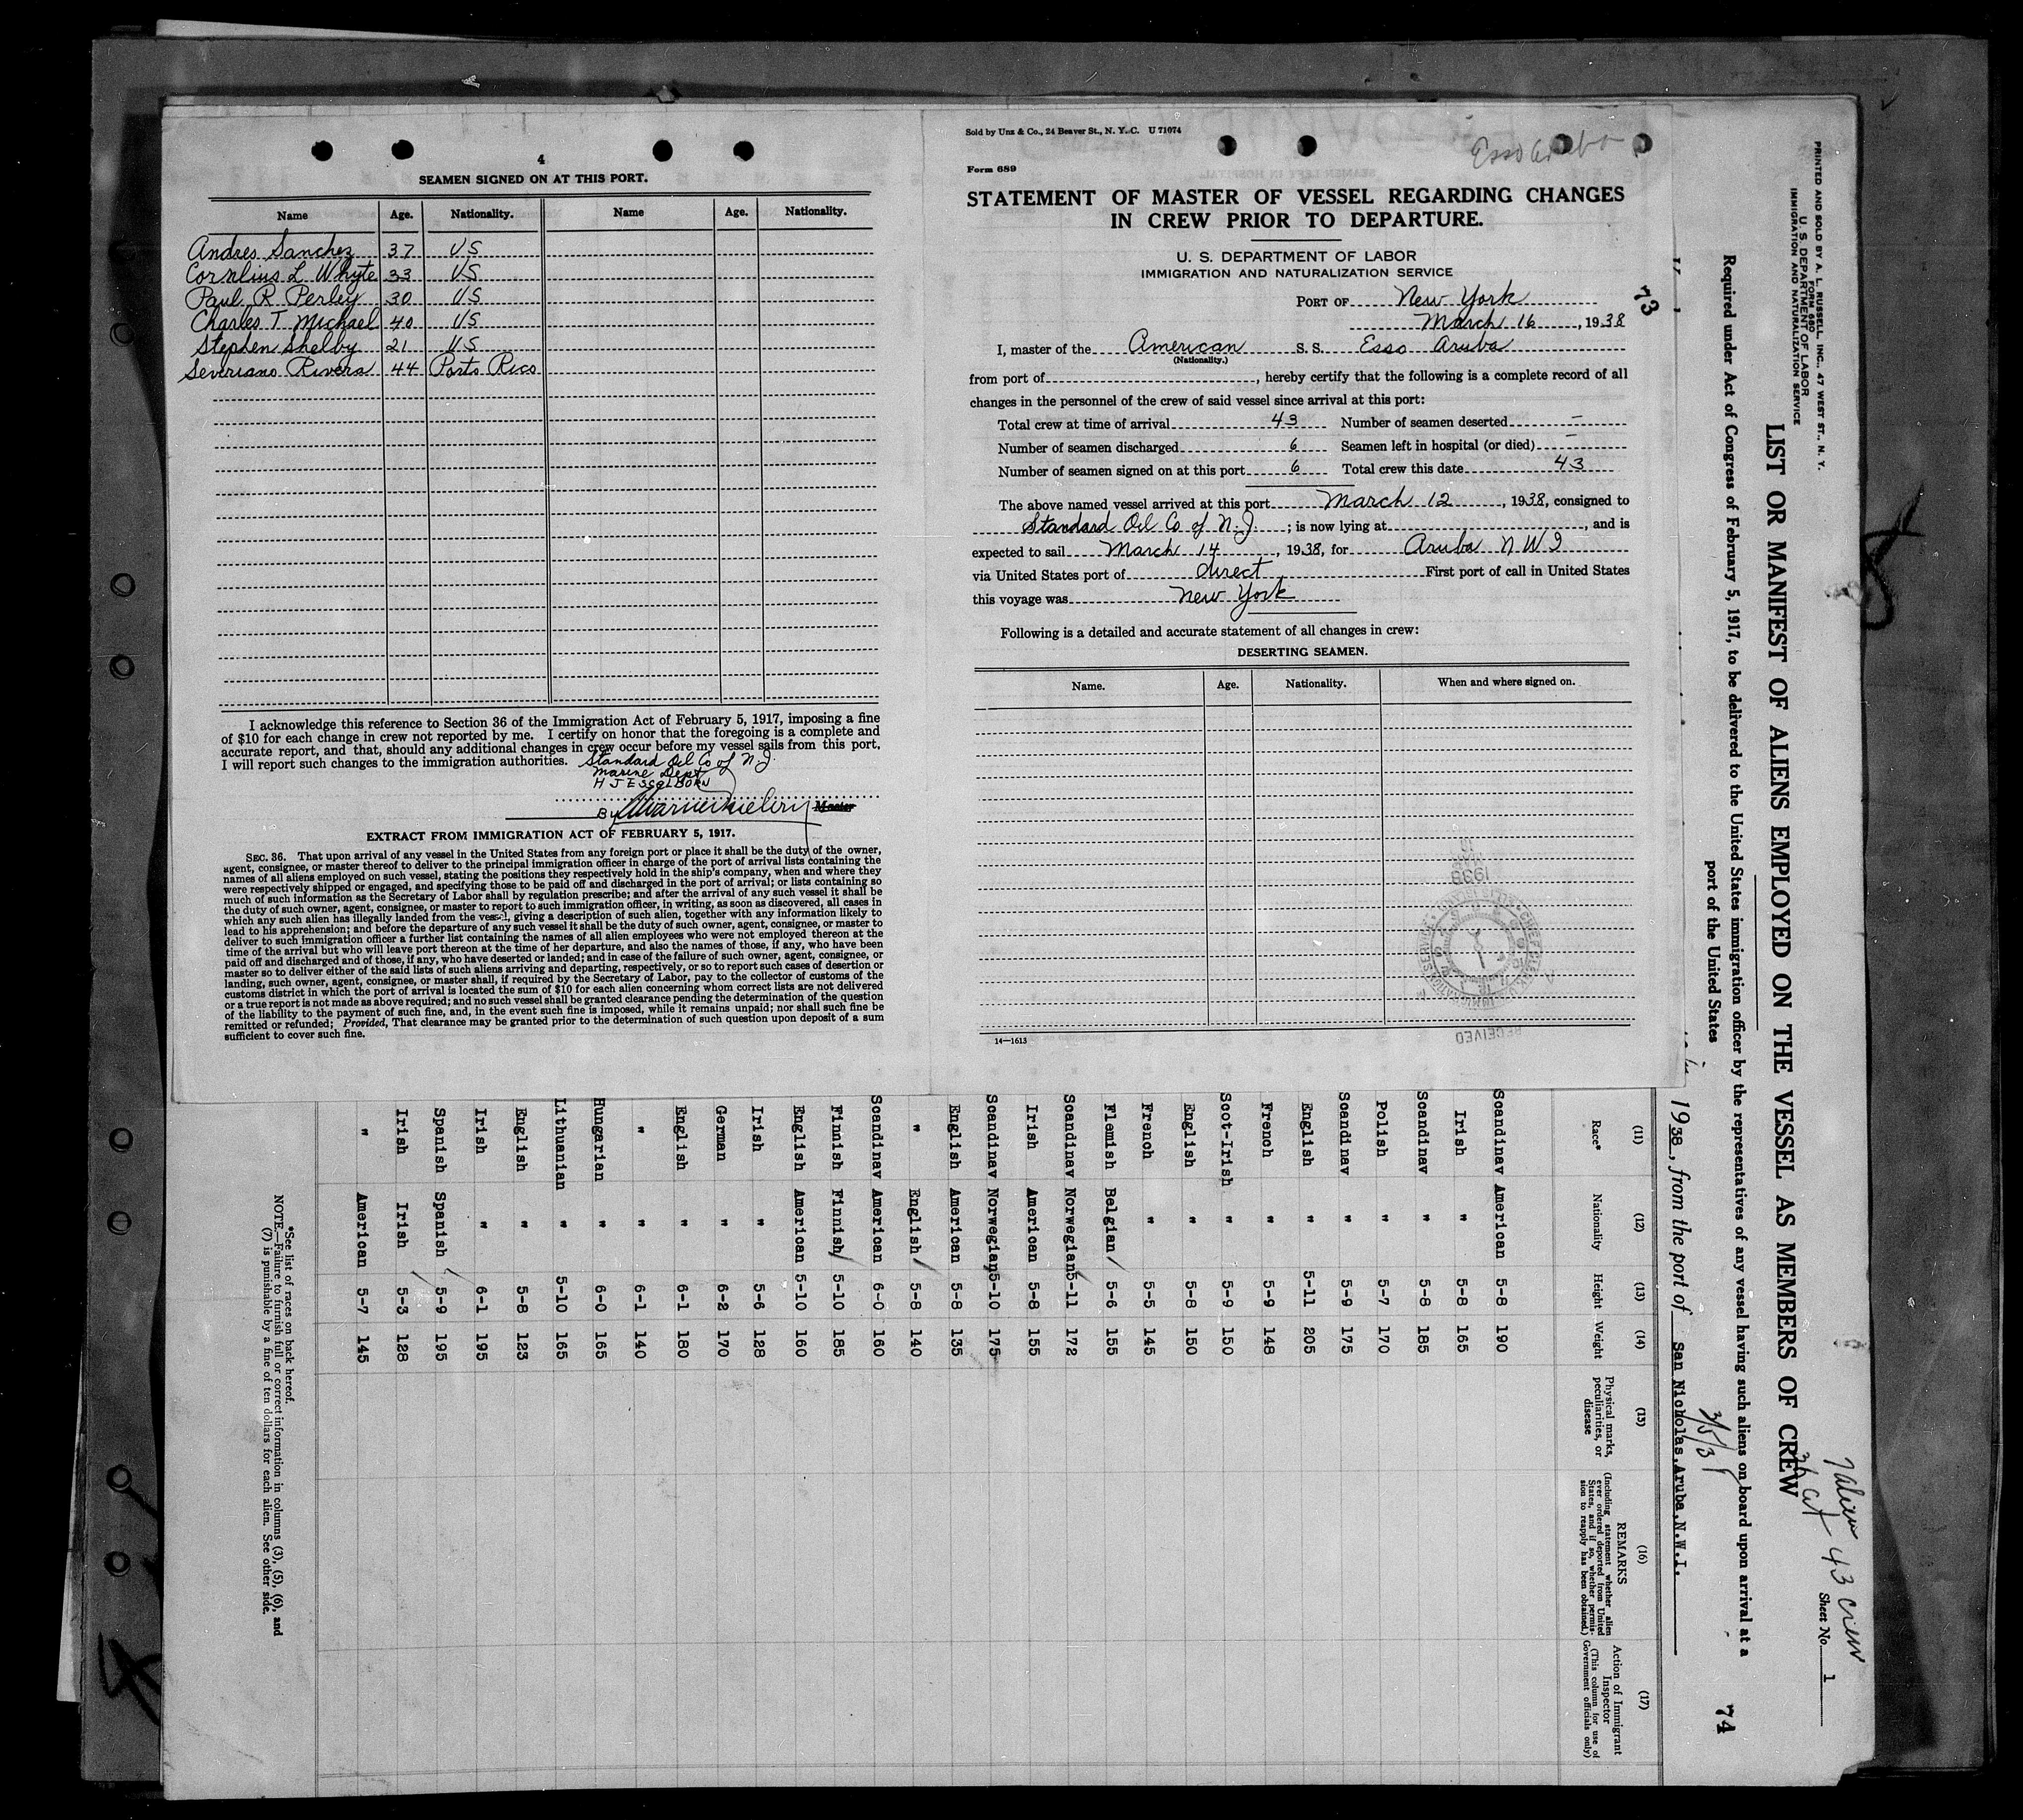 4
SEAMEN SIGNED ON AT THIS PORT.
Name Age. Nationality. Name Age. Nationality.
Andres Sanchez 37 US
Cornlius L Whyte 33 US
Paul R Perley 30 US
Charles T Michael 40 US
Stephen Shelby 21 US
Severiano Rivera 44 Porto Rico
I acknowledge this reference to Section 36 of the Immigration Act of February 5, 1917, imposing a fine
of $10 for each change in crew not reported by me. I certify on honor that the foregoing is a complete and
accurate report, and that, should any additional changes in crew occur before my vessel sails from this port,
I will report such changes to the immigration authorities. Standard Oil Co of N.J.
Marine Dept
H J ESSELBORN
By Master
EXTRACT FROM IMMIGRATION ACT OF FEBRUARY 5, 1917.
SEC. 36. That upon arrival of any vessel in the United States from any foreign port or place it shall be the duty of the owner,
agent, consignee, or master thereof to deliver to the principal immigration officer in charge of the port of arrival lists containing the
names of all aliens employed on such vessel, stating the positions they respectively hold in the ship's company, when and where they
were respectively shipped or engaged, and specifying those to be paid off and discharged in the port of arrival; or lists containing so
much of such information as the Secretary of Labor shall by regulation prescribe; and after the arrival of any such vessel it shall be
the duty of such owner, agent, consignee, or master to report to such immigration officer, in writing, as soon as discovered, all cases in
which any such alien has illegally landed from the vessel, giving a description of such alien, together with any information likely to
lead to his apprehension; and before the departure of any such vessel it shall be the duty of such owner, agent, consignee, or master to
deliver to such immigration officer a further list containing the names of all alien employees who were not employed thereon at the
time of the arrival but who will leave port thereon at the time of her departure, and also the names of those, if any, who have been
paid off and discharged and of those, if any, who have deserted or landed; and in case of the failure of such owner, agent, consignee, or
master so to deliver either of the said lists of such aliens arriving and departing, respectively, or so to report such cases of desertion or
landing, such owner, agent, consignee, or master shall, if required by the Secretary of Labor, pay to the collector of customs of the
customs district in which the port of arrival is located the sum of $10 for each alien concerning whom correct lists are not delivered
or a true report is not made as above required; and no such vessel shall be granted clearance pending the determination of the question
of the liability to the payment of such fine, and, in the event such fine is imposed, while it remains unpaid; nor shall such fine be
remitted or refunded; Provided, That clearance may be granted prior to the determination of such question upon deposit of a sum
sufficient to cover such fine.
Sold by Unz & Co., 24 Beaver St., N. Y. C. U 71074
Esso Aruba
Form 689
STATEMENT OF MASTER OF VESSEL REGARDING CHANGES
IN CREW PRIOR TO DEPARTURE.
U. S. DEPARTMENT OF LABOR
IMMIGRATION AND NATURALIZATION SERVICE
73
PORT OF New York
March 16, 1938
I, master of the American S. S. Esso Aruba
(Nationality.)
from port of , hereby certify that the following is a complete record of all
changes in the personnel of the crew of said vessel since arrival at this port:
Total crew at time of arrival 43 Number of seamen deserted –
Number of seamen discharged 6 Seamen left in hospital (or died) –
Number of seamen signed on at this port 6 Total crew this date 43
The above named vessel arrived at this port March 12, 1938, consigned to
Standard Oil Co of N.J. ; is now lying at , and is
expected to sail March 14, 1938, for Aruba N W I
via United States port of direct First port of call in United States
this voyage was New York
Following is a detailed and accurate statement of all changes in crew:
DESERTING SEAMEN.
Name. Age. Nationality. When and where signed on.
14—1613
RECEIVED
PRINTED AND SOLD BY A. L. RUSSELL, INC., 47 WEST ST., N. Y.
FORM 680
U. S. DEPARTMENT OF LABOR
IMMIGRATION AND NATURALIZATION SERVICE
43 crew
Sheet No. 1
LIST OR MANIFEST OF ALIENS EMPLOYED ON THE VESSEL AS MEMBERS OF CREW
Required under Act of Congress of February 5, 1917, to be delivered to the United States immigration officer by the representatives of any vessel having such aliens on board upon arrival at a
port of the United States
74
1938, from the port of San Nicholas,Aruba,N.W.I.
(11) (12) (13) (14) (15) (16) (17)
Race* Nationality Height Weight Physical marks, peculiarities, or disease REMARKS (Including statement whether alien ever ordered deported from United States, and if so, whether permission to reapply has been obtained.) Action of Immigrant Inspector (This column for use of Government officials only)
Scandinav American 5-8 190
Irish " 5-8 165
Scandinav " 5-8 185
Polish " 5-7 170
Scandinav " 5-9 175
English " 5-11 205
French " 5-9 148
Scot-Irish " 5-9 150
English " 5-8 150
French " 5-5 145
Flemish Belgian 5-6 155
Scandinav Norwegian 5-11 172
Irish American 5-8 155
Scandinav Norwegian 5-10 175
English American 5-8 135
" English 5-8 140
Scandinav American 6-0 160
Finnish Finnish 5-10 185
English American 5-10 160
Irish " 5-6 128
German " 6-2 170
English " 6-1 180
" " 6-1 140
Hungarian " 6-0 165
Lithuanian " 5-10 165
English " 5-8 123
Irish " 6-1 195
Spanish Spanish 5-9 195
Irish Irish 5-3 128
" American 5-7 145
*See list of races on back hereof.
NOTE.—Failure to furnish full or correct information in columns (3), (5), (6), and
(7) is punishable by a fine of ten dollars for each alien. See other side.